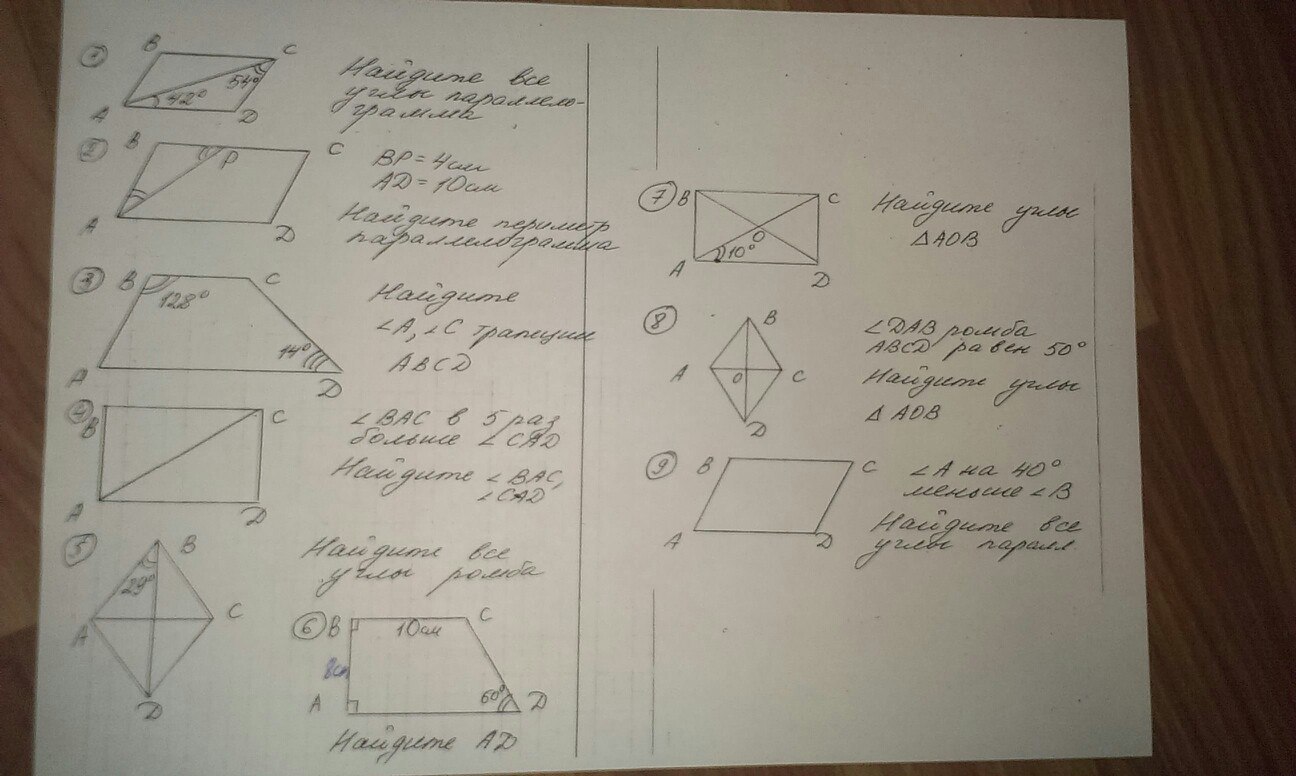 1
B
C
54°
42°
A
D
Найдите все
углы параллело-
грамма
2
B
P
C
A
D
BP = 4 см
AD = 10 см
Найдите периметр
параллелограмма
3
B
C
128°
14°
A
D
Найдите
∠A, ∠C трапеции
ABCD
4
B
C
A
D
∠BAC в 5 раз
больше ∠CAD
Найдите ∠BAC,
∠CAD
5
B
29°
A
C
D
Найдите все
углы ромба
6
B
C
10 см
A
60°
D
Найдите AD
7
B
C
O
10°
A
D
Найдите углы
△AOB
8
B
A
O
C
D
∠DAB ромба
ABCD равен 50°
Найдите углы
△AOB
9
B
C
A
D
∠A на 40°
меньше ∠B
Найдите все
углы паралл.